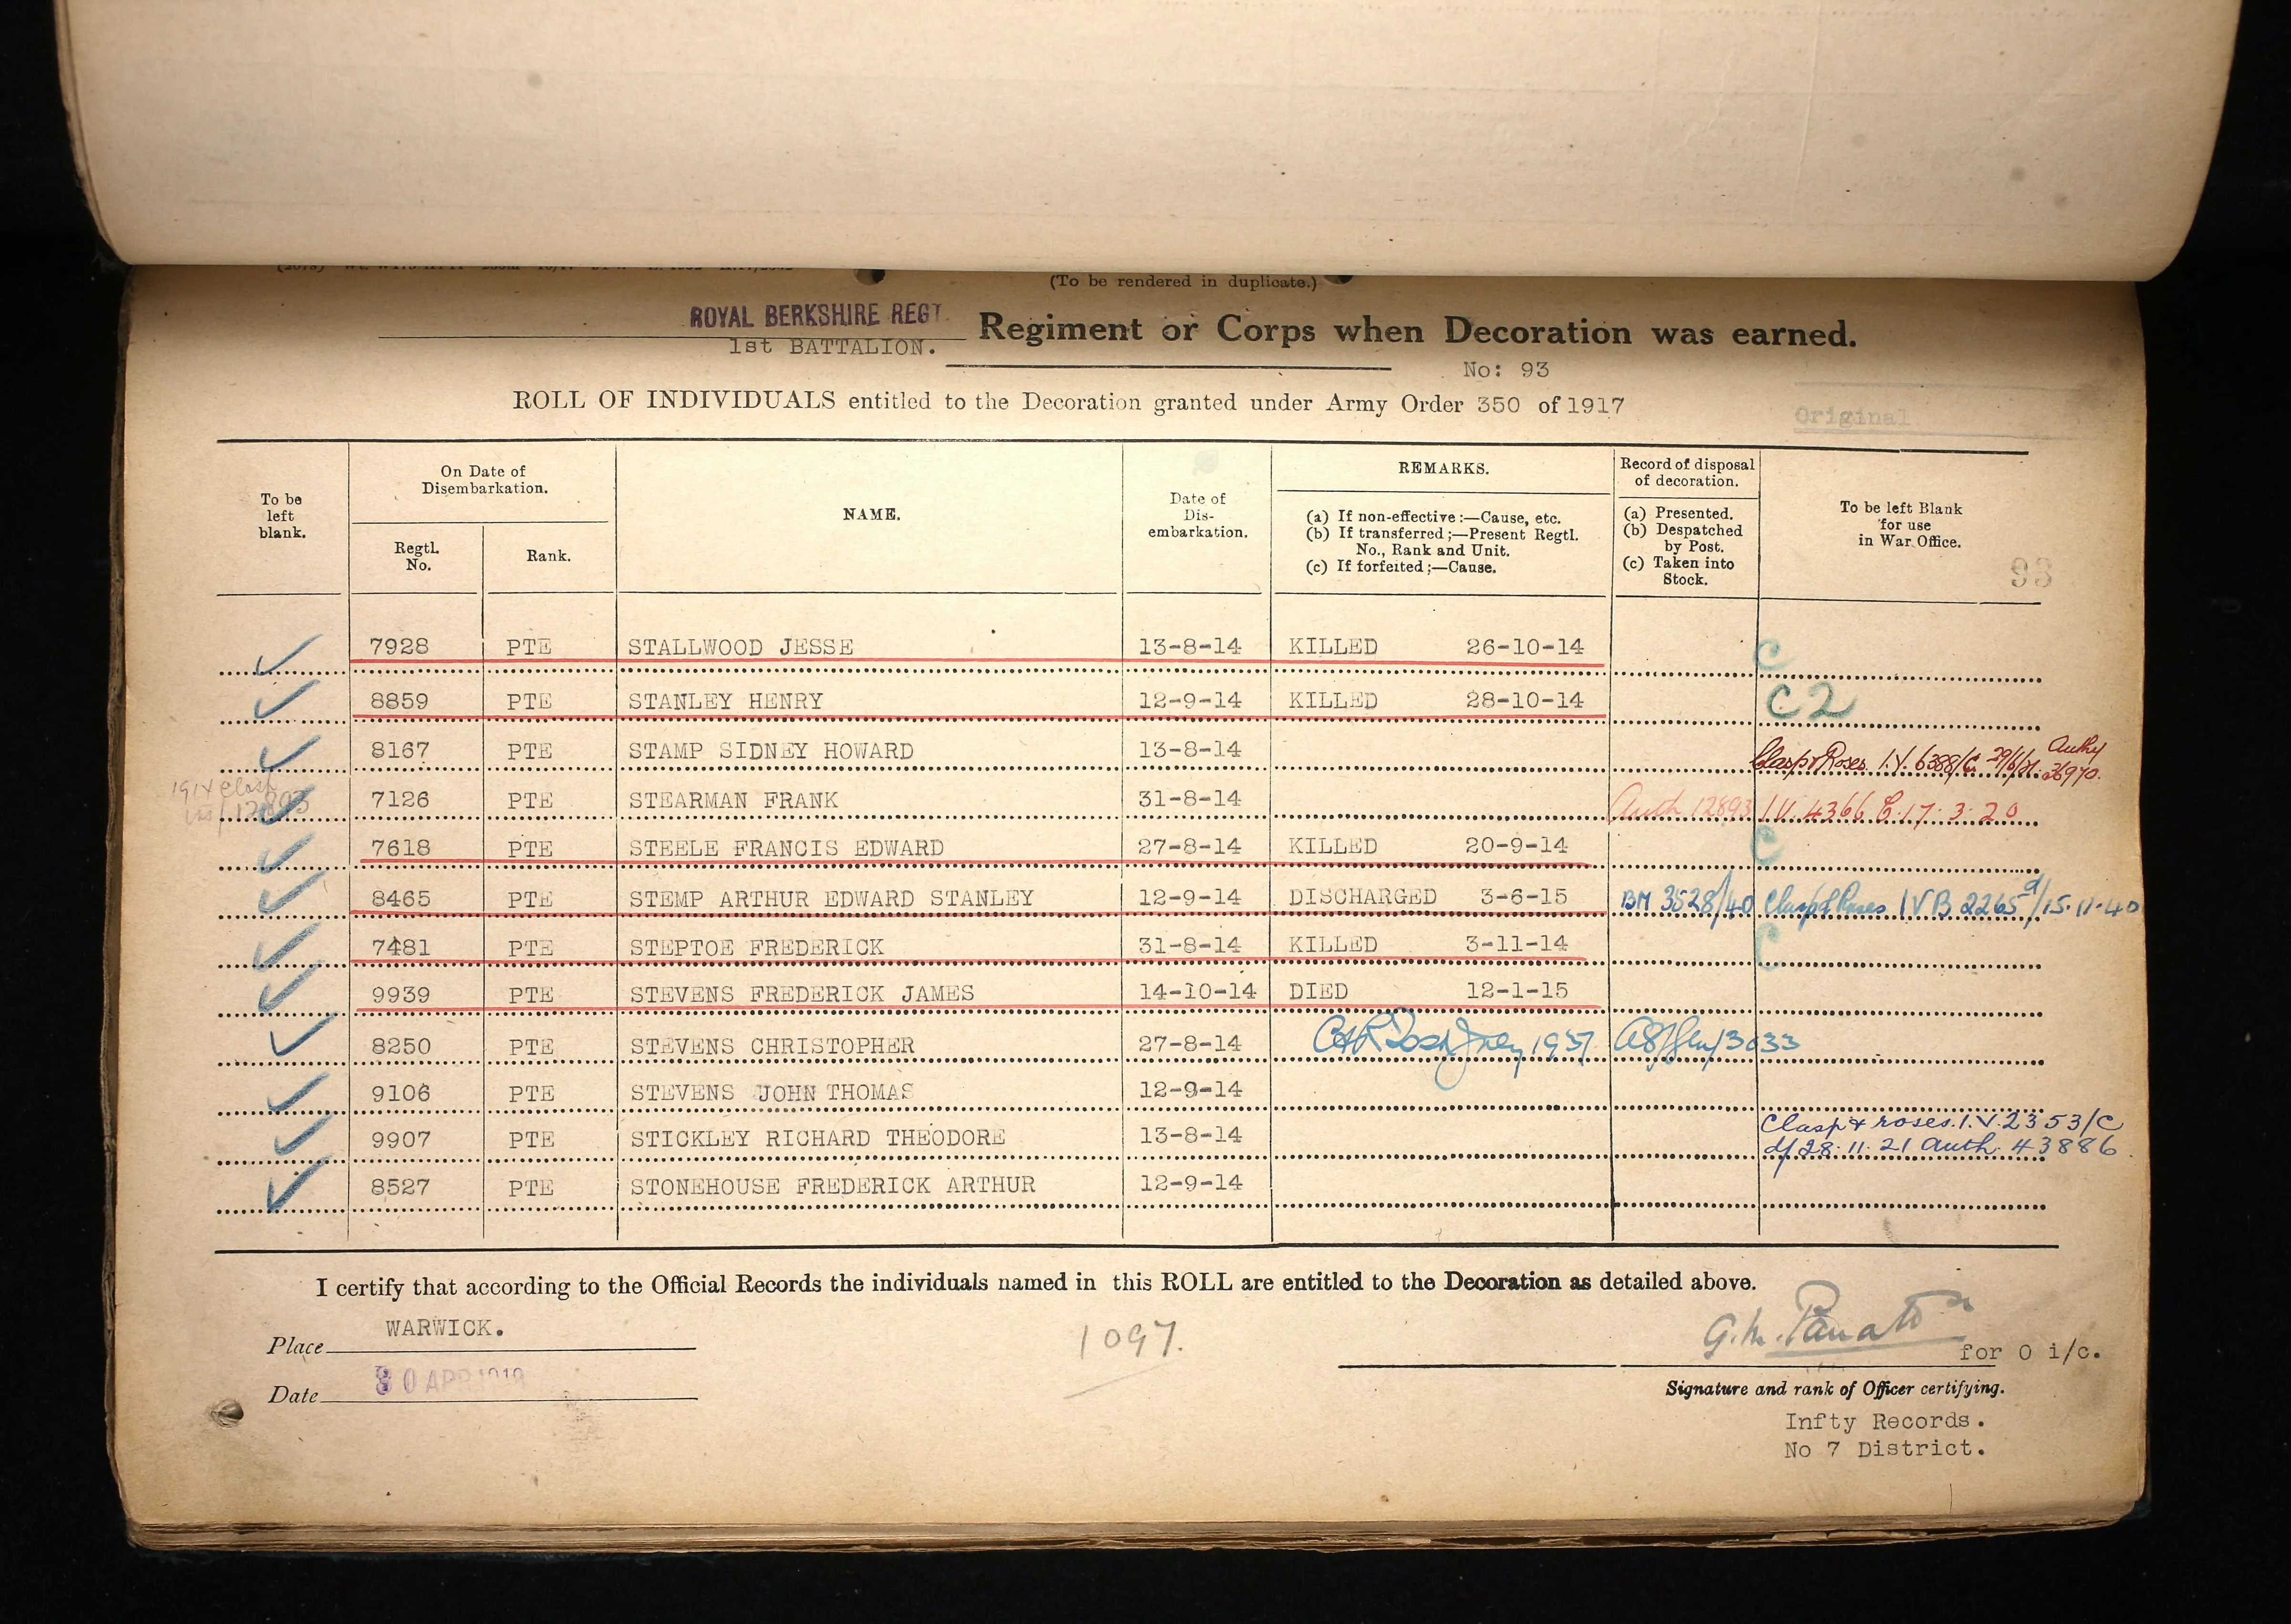 (To be rendered in duplicate.)
ROYAL BERKSHIRE REGT.
1st BATTALION.
Regiment or Corps when Decoration was earned.
No: 93
ROLL OF INDIVIDUALS entitled to the Decoration granted under Army Order 350 of 1917
Original
To be left blank.
On Date of Disembarkation.
Regtl. No.
Rank.
NAME.
Date of Dis-embarkation.
REMARKS.
(a) If non-effective:—Cause, etc.
(b) If transferred;—Present Regtl. No., Rank and Unit.
(c) If forfeited;—Cause.
Record of disposal of decoration.
(a) Presented.
(b) Despatched by Post.
(c) Taken into Stock.
To be left Blank for use in War Office.
93
7928 PTE STALLWOOD JESSE 13-8-14 KILLED 26-10-14 C
8859 PTE STANLEY HENRY 12-9-14 KILLED 28-10-14 C2
8167 PTE STAMP SIDNEY HOWARD 13-8-14 Clasp & Roses I.V. 6388/C 29/6/21 Authy 36970.
1914 Clasp 12893
7126 PTE STEARMAN FRANK 31-8-14 Auth 12893 I.V. 4366 C. 17.3.20
7618 PTE STEELE FRANCIS EDWARD 27-8-14 KILLED 20-9-14 C
8465 PTE STEMP ARTHUR EDWARD STANLEY 12-9-14 DISCHARGED 3-6-15 BM 3528/40 Clasp & Roses IVB 2265 d/15.11.40
7481 PTE STEPTOE FREDERICK 31-8-14 KILLED 3-11-14 C
9939 PTE STEVENS FREDERICK JAMES 14-10-14 DIED 12-1-15
8250 PTE STEVENS CHRISTOPHER 27-8-14 1937
9106 PTE STEVENS JOHN THOMAS 12-9-14
9907 PTE STICKLEY RICHARD THEODORE 13-8-14 Clasp & roses. I.V. 2353/C
d/28.11.21 Auth. 43886
8527 PTE STONEHOUSE FREDERICK ARTHUR 12-9-14
I certify that according to the Official Records the individuals named in this ROLL are entitled to the Decoration as detailed above.
Place WARWICK.
1097.
for O i/c.
Date 30 APR 1919
Signature and rank of Officer certifying.
Infty Records.
No 7 District.